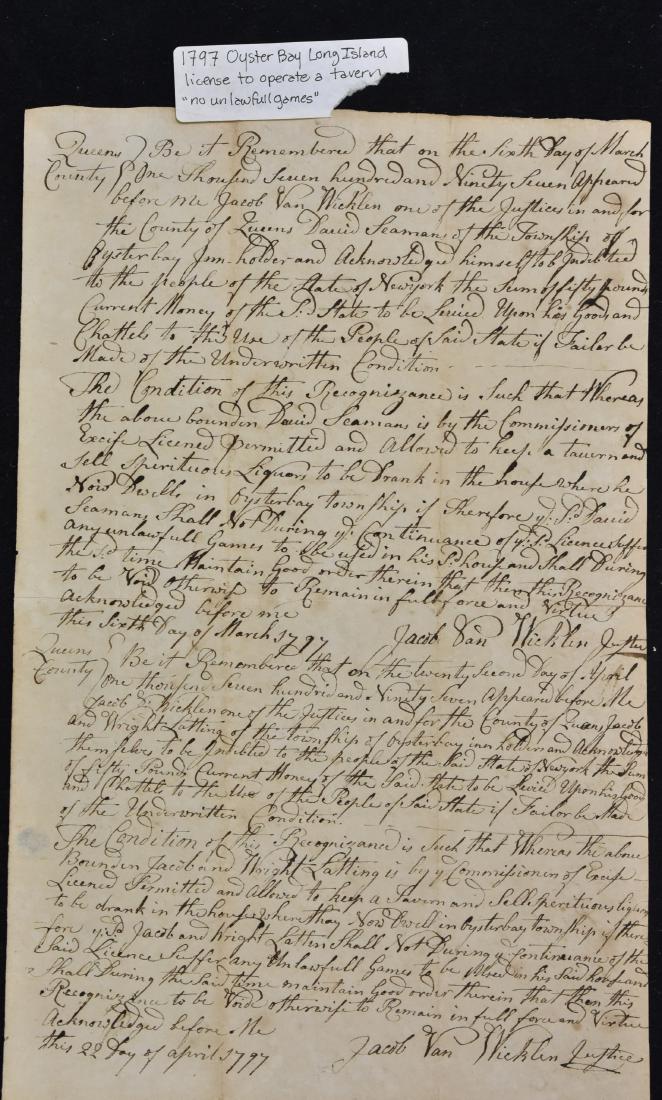 1797 Oyster Bay Long Island
license to operate a tavern
"no unlawfull games"
Queens } Be it Remembered that on the Sixth Day of March
County } One Thousand Seven hundred and Ninety Seven Appeared
before me Jacob Van Wicklen one of the Justices in and for
the County of Queens David Seamans of the Township of
Oysterbay Inn-holder and Acknowledged himself to b Indebted
to the people of the State of Newyork the Sum of fifty pounds
Current Money of the Sd. State to be Levied Upon his Goods and
Chattels to the Use of the People of Said State if Failor be
Made of the Underwritten Condition
The Condition of this Recognizzance is Such that Whereas
the above bounden David Seamans is by the Commissioners of
Excise Licened Permitted and Allowed to keep a tavern and
Sell Spirituous Liquors to be Drank in the house where he
Now Dwells in Oysterbay township if Therefore ye. Sd. David
Seamans Shall Not During ye. Continuance of ye. Sd. Licence Suffer
any unlawfull Games to be used in his Sd. house and Shall During
the Sd. time Maintain Good order therein that then this Recognizance
to be Void otherwise to Remain in full force and Virtue
acknowledged before me
this Sixth Day of March 1797 Jacob Van Wicklen Justice
Queens } Be it Remembered that on the twenty Second Day of April
County } One thousend Seven hundred and Ninety Seven Appeared before Me
Jacob V. Wicklen one of the Justices in and for the County of Queens Jacob
and Wright Latting of the township of Oysterbay inn holders and Acknowledged
themselves to be Indebted to the people of the Said State of Newyork the Sum
of fifty Pounds Current Money of the Said State to be Levied Upon his Good
and Chattels to the Use of the People of Said State if Failor be Made
of the Underwritten Condition.
The Condition of this Recognizzance is Such that Whereas the above
Bounden Jacob and Wright Latting is by ye Commissioners of
Licened Permitted and Allowed to keep a Tavern and Sell Sperituous liquors
to be drank in the house where they Now Dwell in Oysterbay township if there
fore ye. Sd. Jacob and Wright Latten Shall Not During ye Continuance of the
Said Licence Suffer any Unlawfull Games to be Used in his Said house and
Shall During the Said time maintain Good order therein that then this
Recognizzance to be Void otherwise to Remain in full force and Virtue
Acknowledged before Me
this 22 Day of april 1797 Jacob Van Wicklen Justice